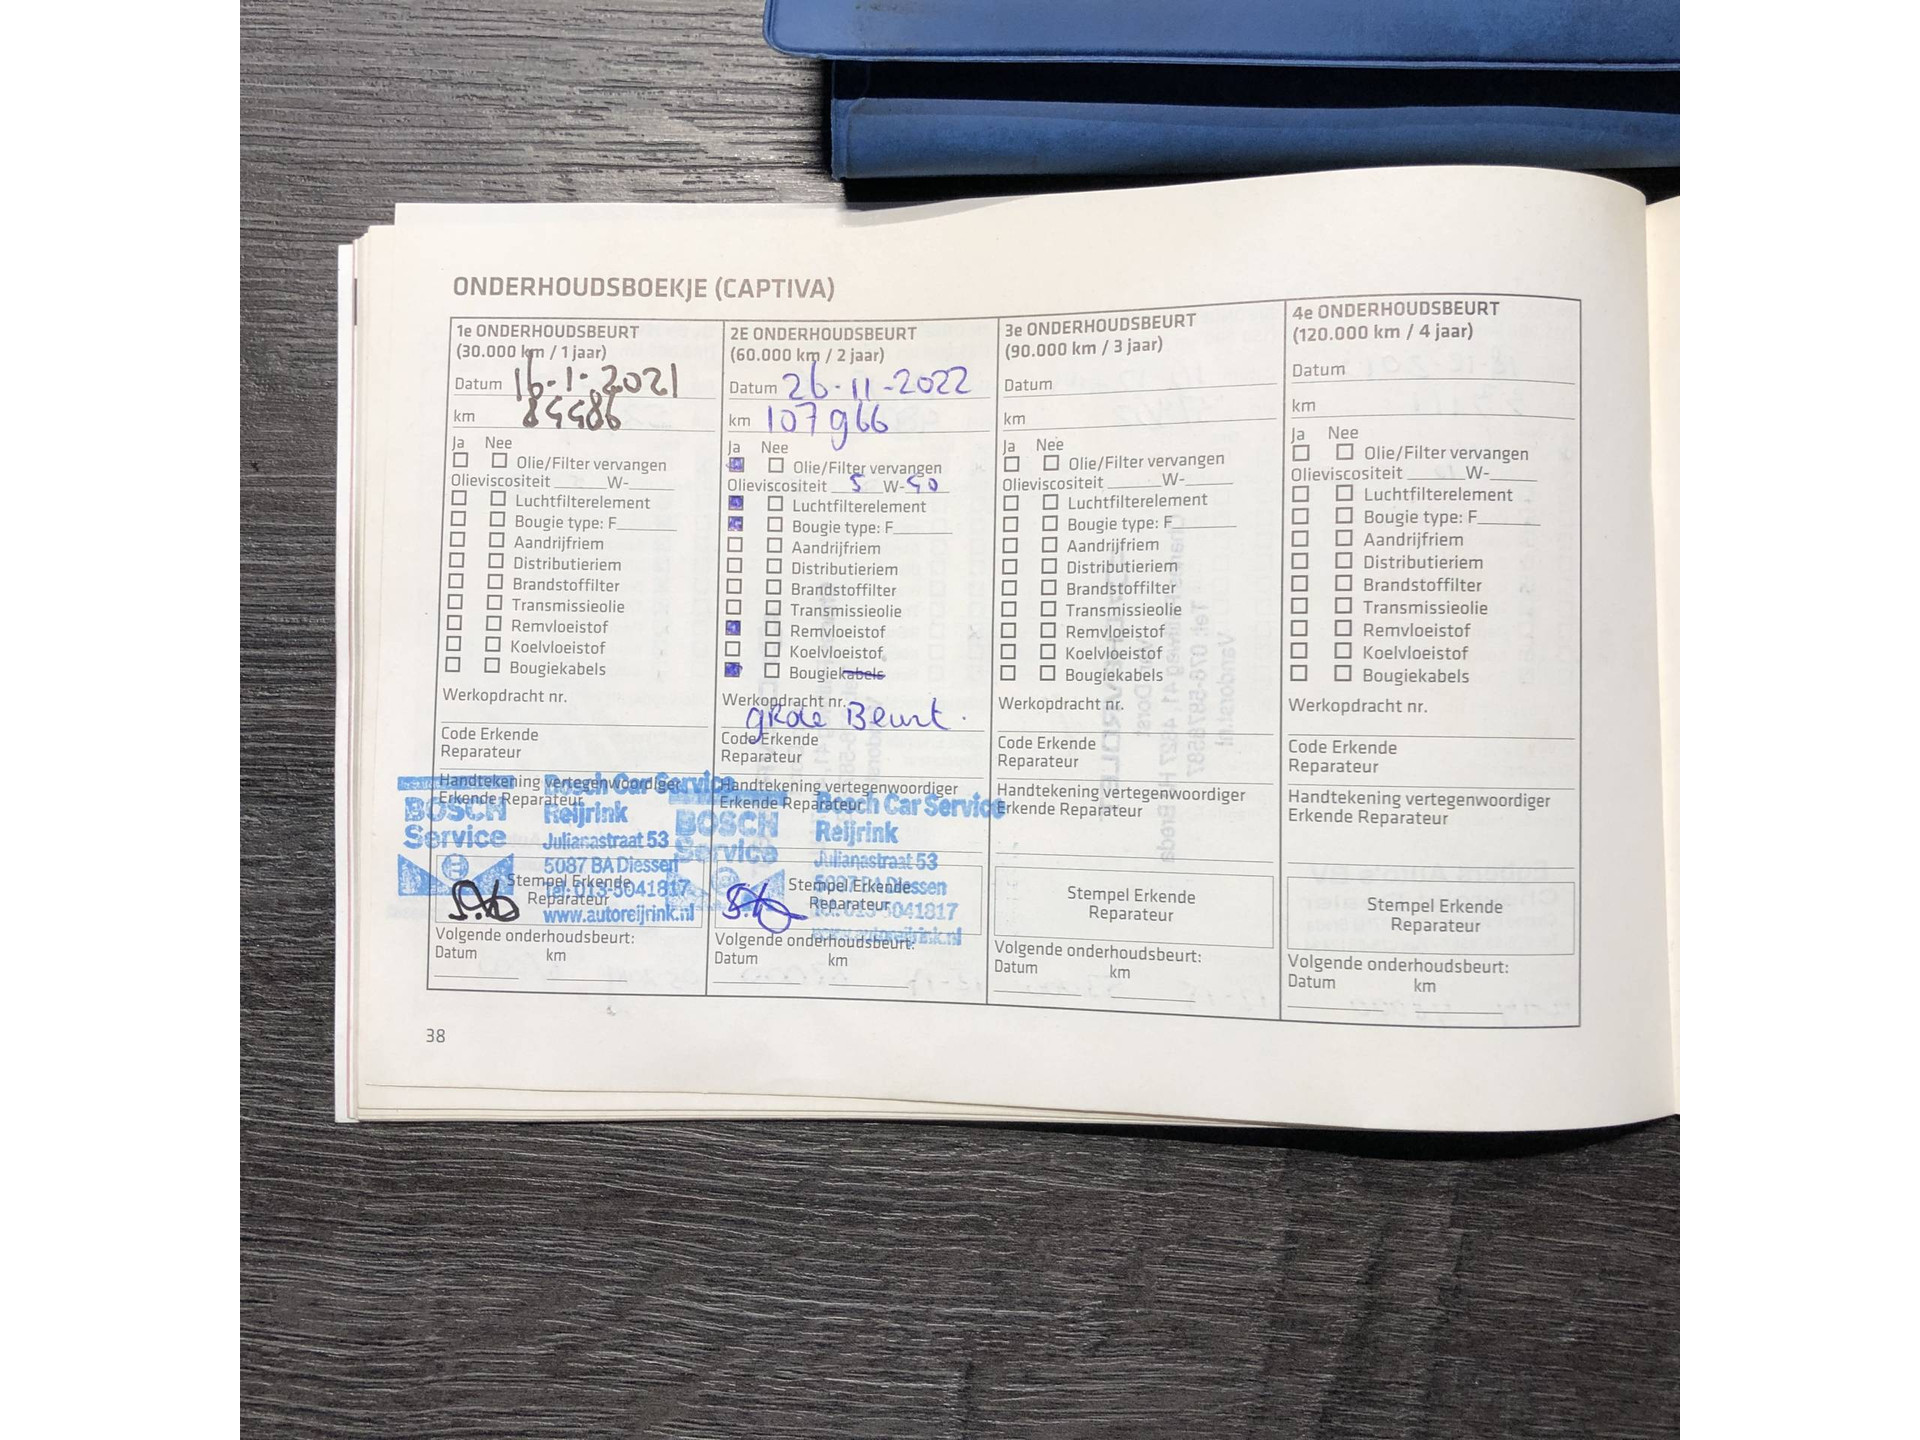 ONDERHOUDSBOEKJE (CAPTIVA)
1e ONDERHOUDSBEURT
(30.000 km / 1 jaar)
Datum 16-1-2021
km 84486
Ja Nee
Olie/Filter vervangen
Olieviscositeit ______W-_____
Luchtfilterelement
Bougie type: F________
Aandrijfriem
Distributieriem
Brandstoffilter
Transmissieolie
Remvloeistof
Koelvloeistof
Bougiekabels
Werkopdracht nr.
Code Erkende
Reparateur
Handtekening vertegenwoordiger
Erkende Reparateur
BOSCH
Service
Bosch Car Service
Reijrink
Julianastraat 53
5087 BA Diessen
Tel: 013-5041817
www.autoreijrink.nl
Stempel Erkende
Reparateur
Volgende onderhoudsbeurt:
Datum km
2E ONDERHOUDSBEURT
(60.000 km / 2 jaar)
Datum 26-11-2022
km 107966
Ja Nee
Olie/Filter vervangen
Olieviscositeit 5 W-40
Luchtfilterelement
Bougie type: F________
Aandrijfriem
Distributieriem
Brandstoffilter
Transmissieolie
Remvloeistof
Koelvloeistof
Bougiekabels
Werkopdracht nr.
grote Beurt.
Code Erkende
Reparateur
Handtekening vertegenwoordiger
Erkende Reparateur
BOSCH
Service
Bosch Car Service
Reijrink
Julianastraat 53
5087 BA Diessen
Tel: 013-5041817
www.autoreijrink.nl
Stempel Erkende
Reparateur
Volgende onderhoudsbeurt:
Datum km
3e ONDERHOUDSBEURT
(90.000 km / 3 jaar)
Datum
km
Ja Nee
Olie/Filter vervangen
Olieviscositeit ______W-_____
Luchtfilterelement
Bougie type: F________
Aandrijfriem
Distributieriem
Brandstoffilter
Transmissieolie
Remvloeistof
Koelvloeistof
Bougiekabels
Werkopdracht nr.
Code Erkende
Reparateur
Handtekening vertegenwoordiger
Erkende Reparateur
Stempel Erkende
Reparateur
Volgende onderhoudsbeurt:
Datum km
4e ONDERHOUDSBEURT
(120.000 km / 4 jaar)
Datum
km
Ja Nee
Olie/Filter vervangen
Olieviscositeit ______W-_____
Luchtfilterelement
Bougie type: F________
Aandrijfriem
Distributieriem
Brandstoffilter
Transmissieolie
Remvloeistof
Koelvloeistof
Bougiekabels
Werkopdracht nr.
Code Erkende
Reparateur
Handtekening vertegenwoordiger
Erkende Reparateur
Stempel Erkende
Reparateur
Volgende onderhoudsbeurt:
Datum km
38